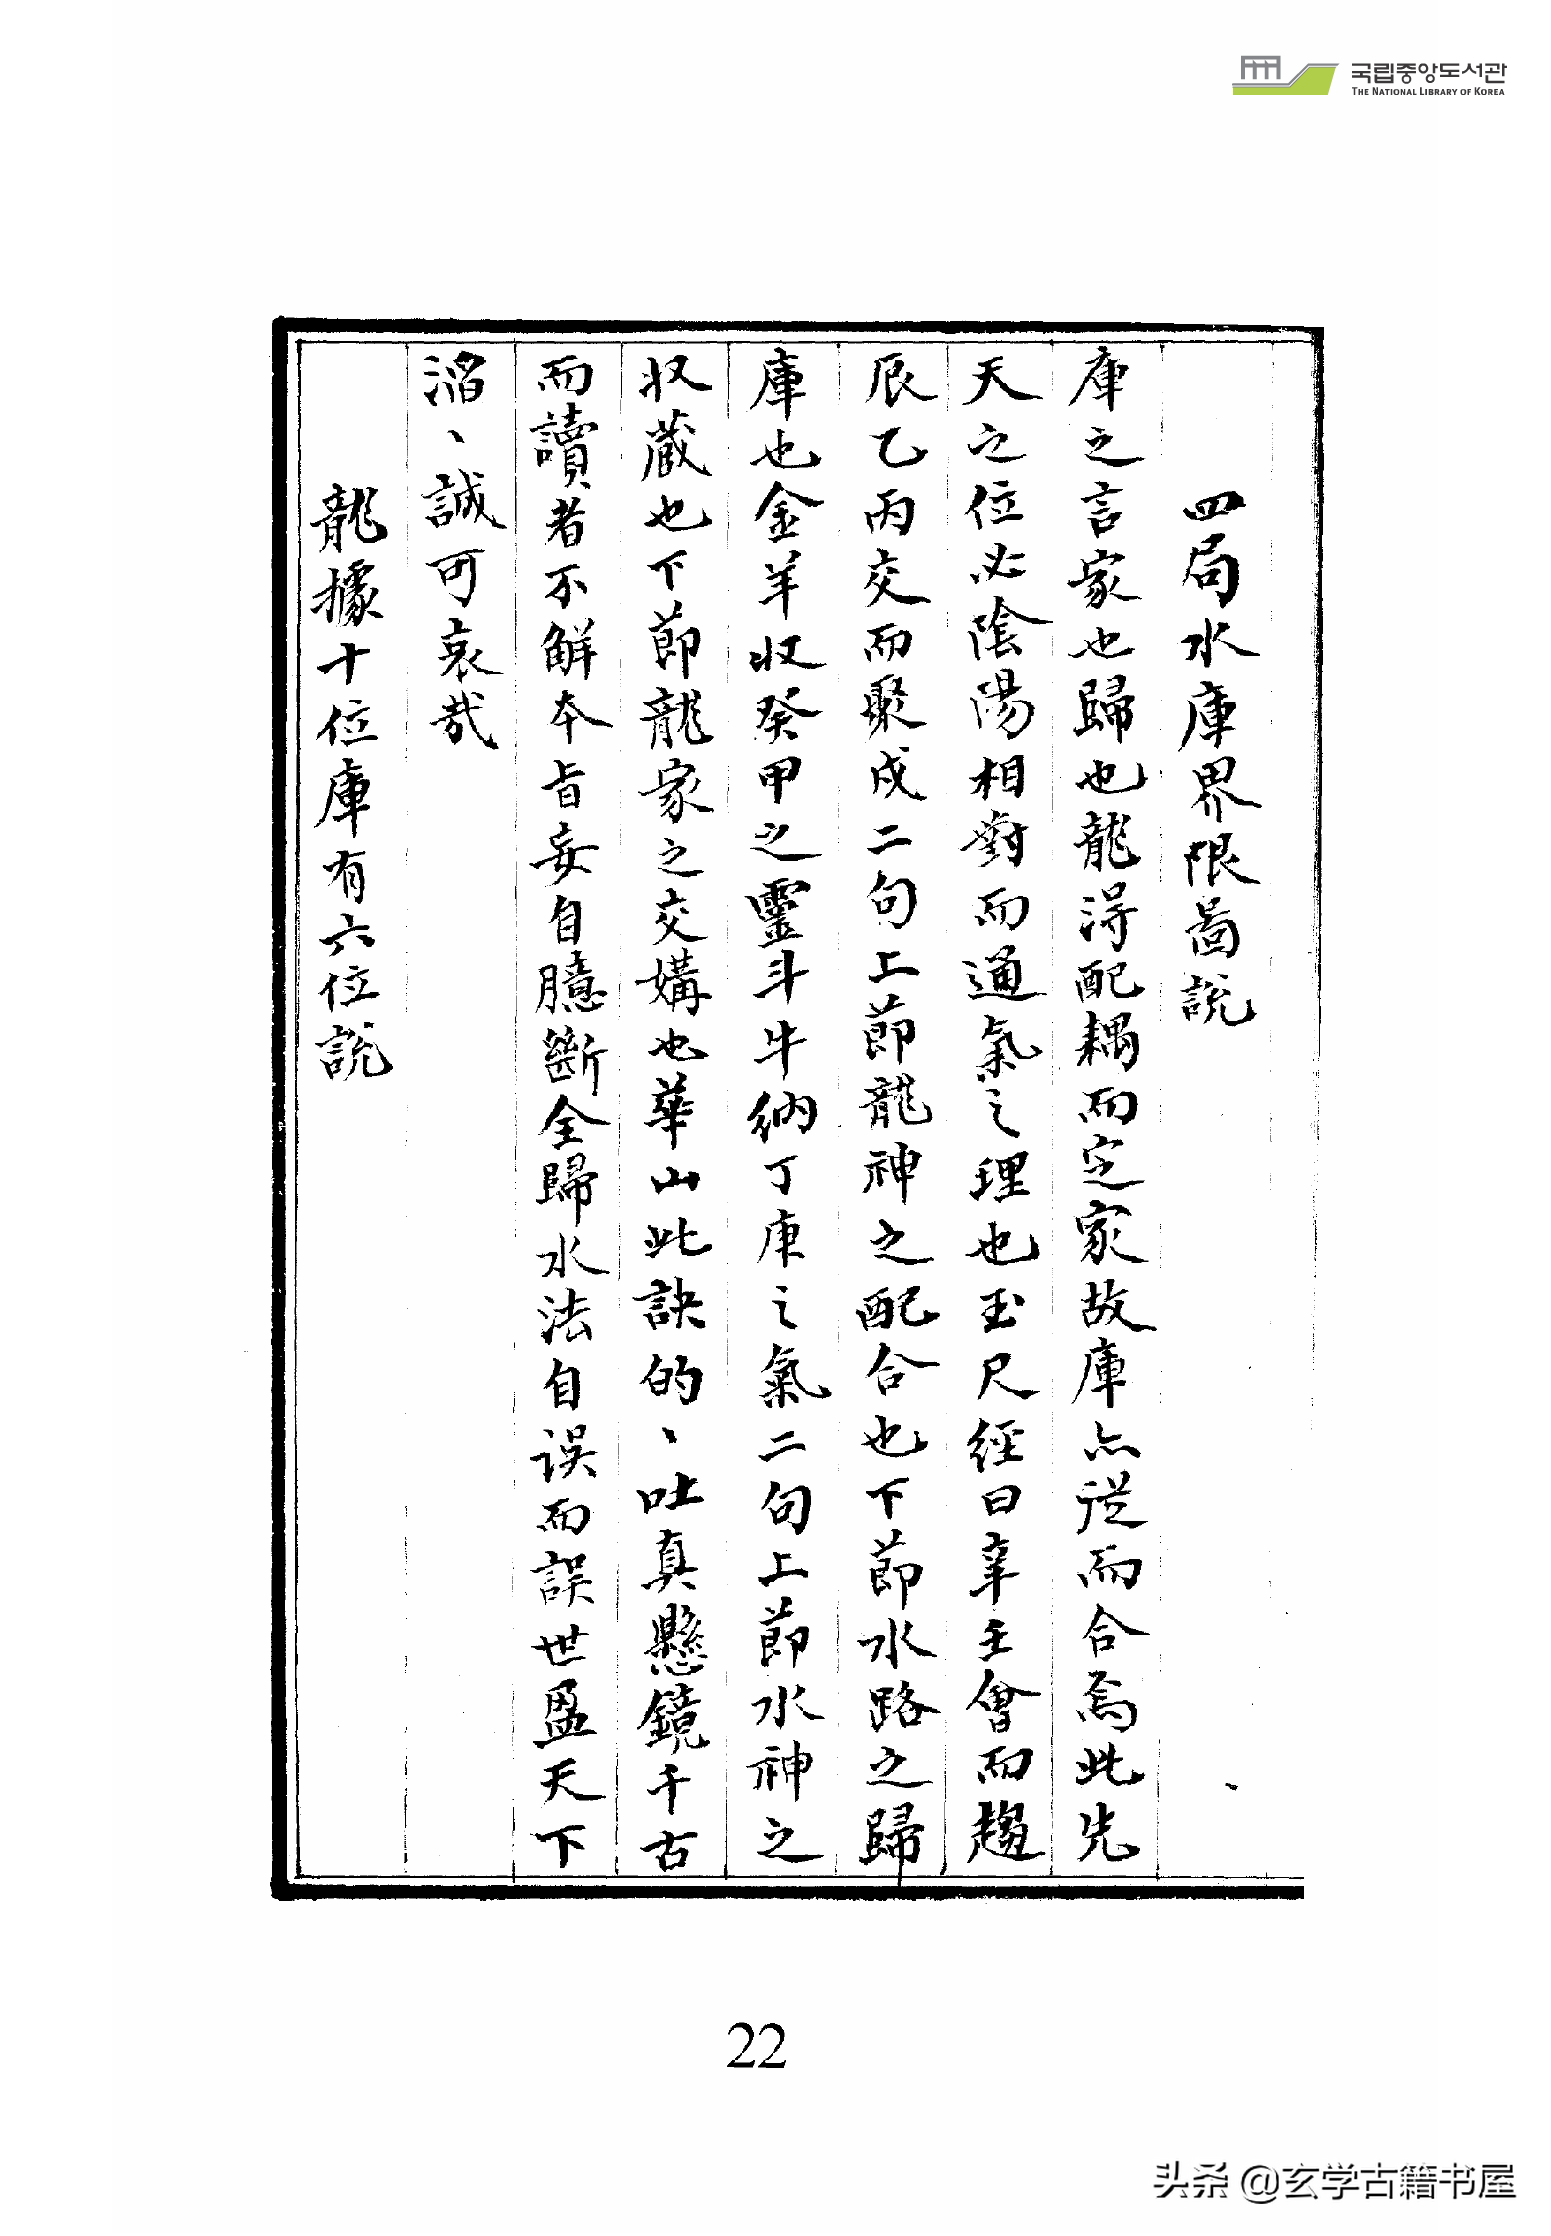 국립중앙도서관
THE NATIONAL LIBRARY OF KOREA
四局水庫界限啚説
庫之言家也歸也龍淂配耦而定家故庫亦從而合焉此先
天之位必陰陽相對而通氣之理也玉尺經曰辛壬會而趨
辰乙丙交而聚戌二句上節龍神之配合也下節水路之歸
庫也金羊收癸甲之靈斗牛納丁庚之氣二句上節水神之
収蔵也下節龍家之交媾也華山此訣的丶吐真懸鏡千古
而讀者不觧本旨妄自臆斷全歸水法自误而誤世盈天下
滔丶誠可哀哉
龍據十位庫有六位説
22
头条 @玄学古籍书屋